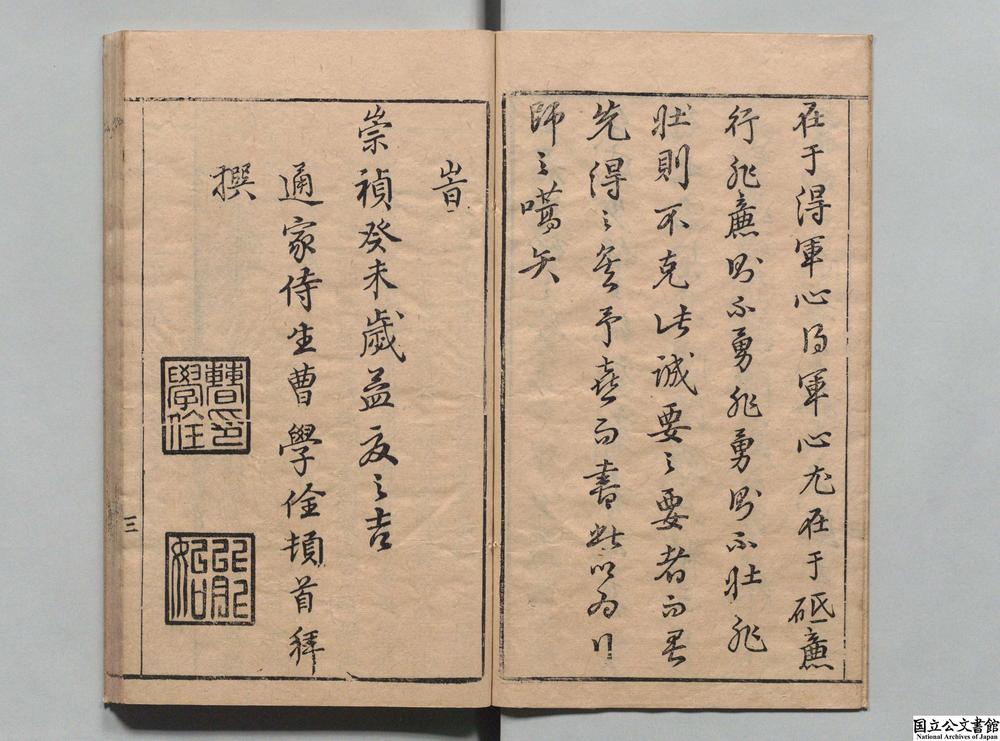 在于得軍心得軍心尤在于砥廉
行非廉則不勇非勇則不壯非
壯則不克此誠要之要者而君
先得之矣予喜而書此以為行
師之嚆矢
旹
崇禎癸未歲孟夏之吉
通家侍生曹學佺頓首拜
撰
曹印學佺
能始
三
国立公文書館
National Archives of Japan